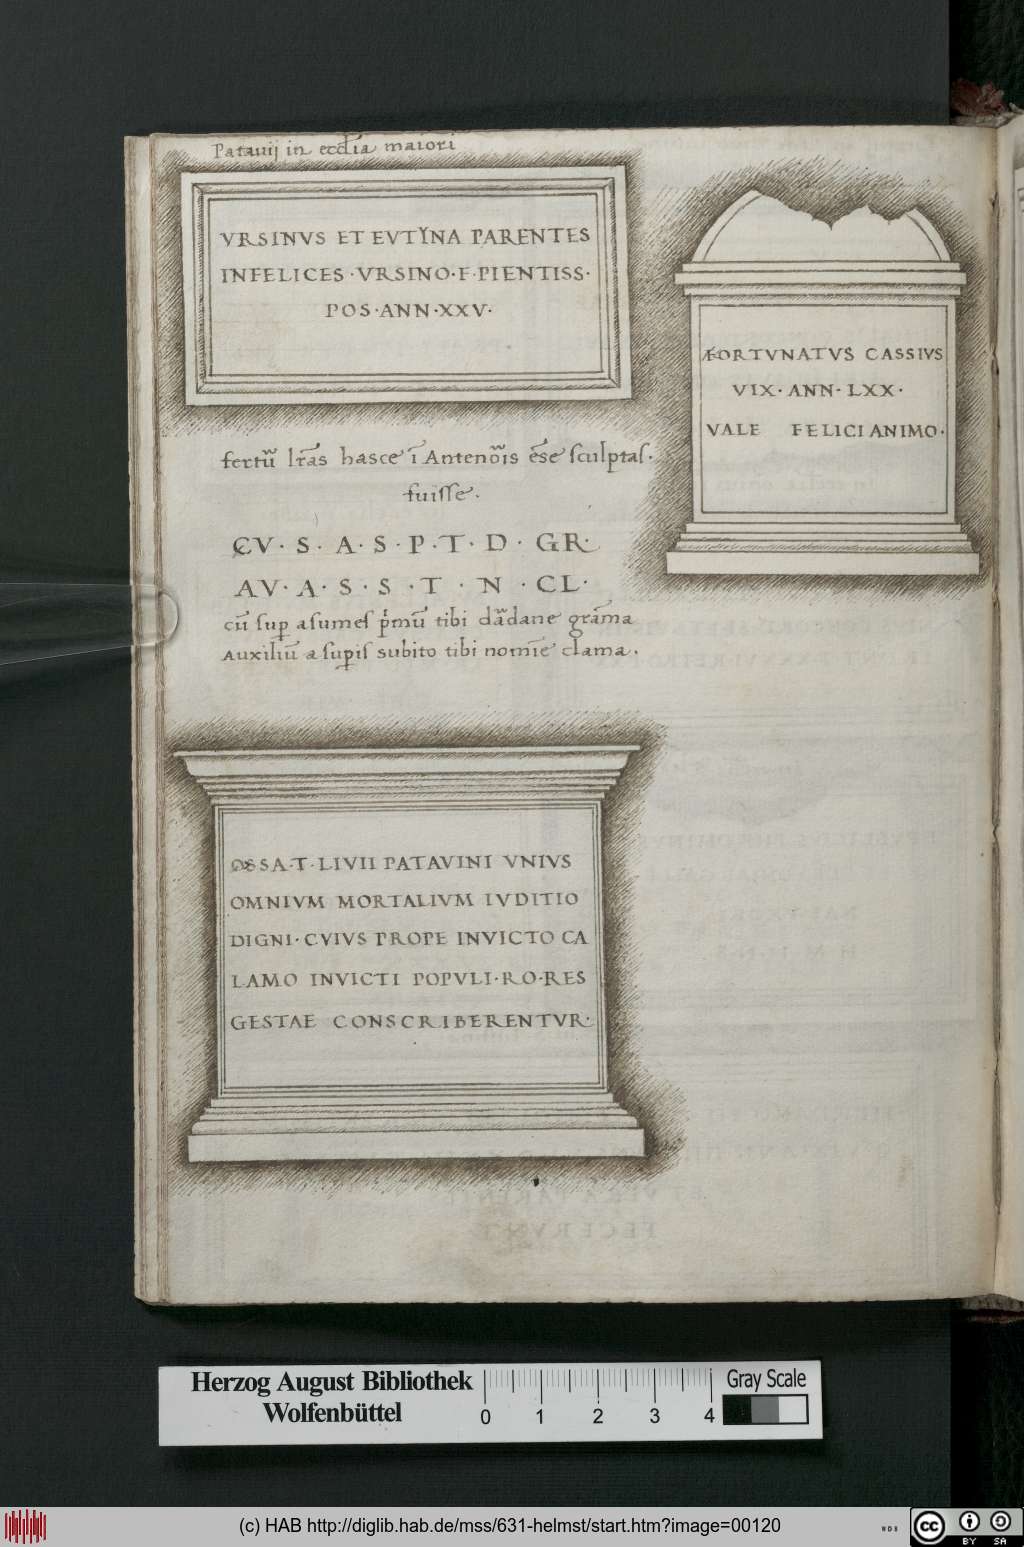 Patauij in eccl̄ia maiori
VRSINVS ET EVTYNA PARENTES
INFELICES · VRSINO · F · PIENTISS ·
POS · ANN · XXV ·
ÆFORTVNATVS CASSIVS
VIX · ANN · LXX ·
VALE FELICI ANIMO ·
fertū lr̄as hasce ī Antenōis ēse sculptas ·
fuisse ·
CV · S · A · S · P · T · D · GR ·
AV · A · S · S · T · N · CL ·
cū sup asumes pͥmū tibi dādane grāma
Auxiliū a supis subito tibi nomīe clama ·
OSSA · T · LIVII PATAVINI VNIVS
OMNIVM MORTALIVM IVDITIO
DIGNI · CVIVS PROPE INVICTO CA
LAMO INVICTI POPVLI · RO · RES
GESTAE CONSCRIBERENTVR ·
Herzog August Bibliothek
Wolfenbüttel
0 1 2 3 4
Gray Scale
(c) HAB http://diglib.hab.de/mss/631-helmst/start.htm?image=00120
WDB
cc
BY SA